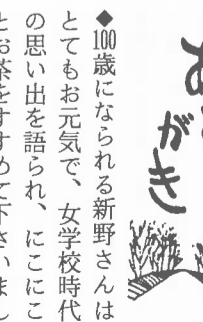 あとがき
◆100歳になられる新野さんは
とてもお元気で、女学校時代
の思い出を語られ、にこにこ
とお茶をすすめて下さいまし